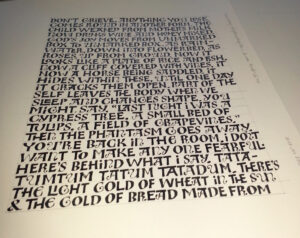 DON'T GRIEVE. ANYTHING YOU LOSE
COMES ROUND IN ANOTHER FORM. THE
CHILD WEANED FROM MOTHER'S MILK
NOW DRINKS WINE AND HONEY MIXED.
GOD'S JOY MOVES FROM UNMARKED
BOX TO UNMARKED BOX. AS RAIN
WATER, DOWN INTO FLOWERBED. AS
ROSES, UP FROM GROUND. NOW IT
LOOKS LIKE A PLATE OF RICE AND FISH,
NOW A CLIFF COVERED WITH VINES,
NOW A HORSE BEING SADDLED. IT
HIDES WITHIN THESE, TILL ONE DAY
IT CRACKS THEM OPEN. PART OF THE
SELF LEAVES THE BODY WHEN WE
SLEEP AND CHANGES SHAPE. YOU
MIGHT SAY, "LAST NIGHT I WAS A
CYPRESS TREE, A SMALL BED OF
TULIPS, A FIELD OF GRAPEVINES."
THEN THE PHANTASM GOES AWAY.
YOU'RE BACK IN THE ROOM. I DON'T
WANT TO MAKE ANY ONE FEARFUL.
HERE'S BEHIND WHAT I SAY. TATA-
TUMTUM TATUM TATADUM. THERE'S
THE LIGHT GOLD OF WHEAT IN THE SUN
& THE GOLD OF BREAD MADE FROM